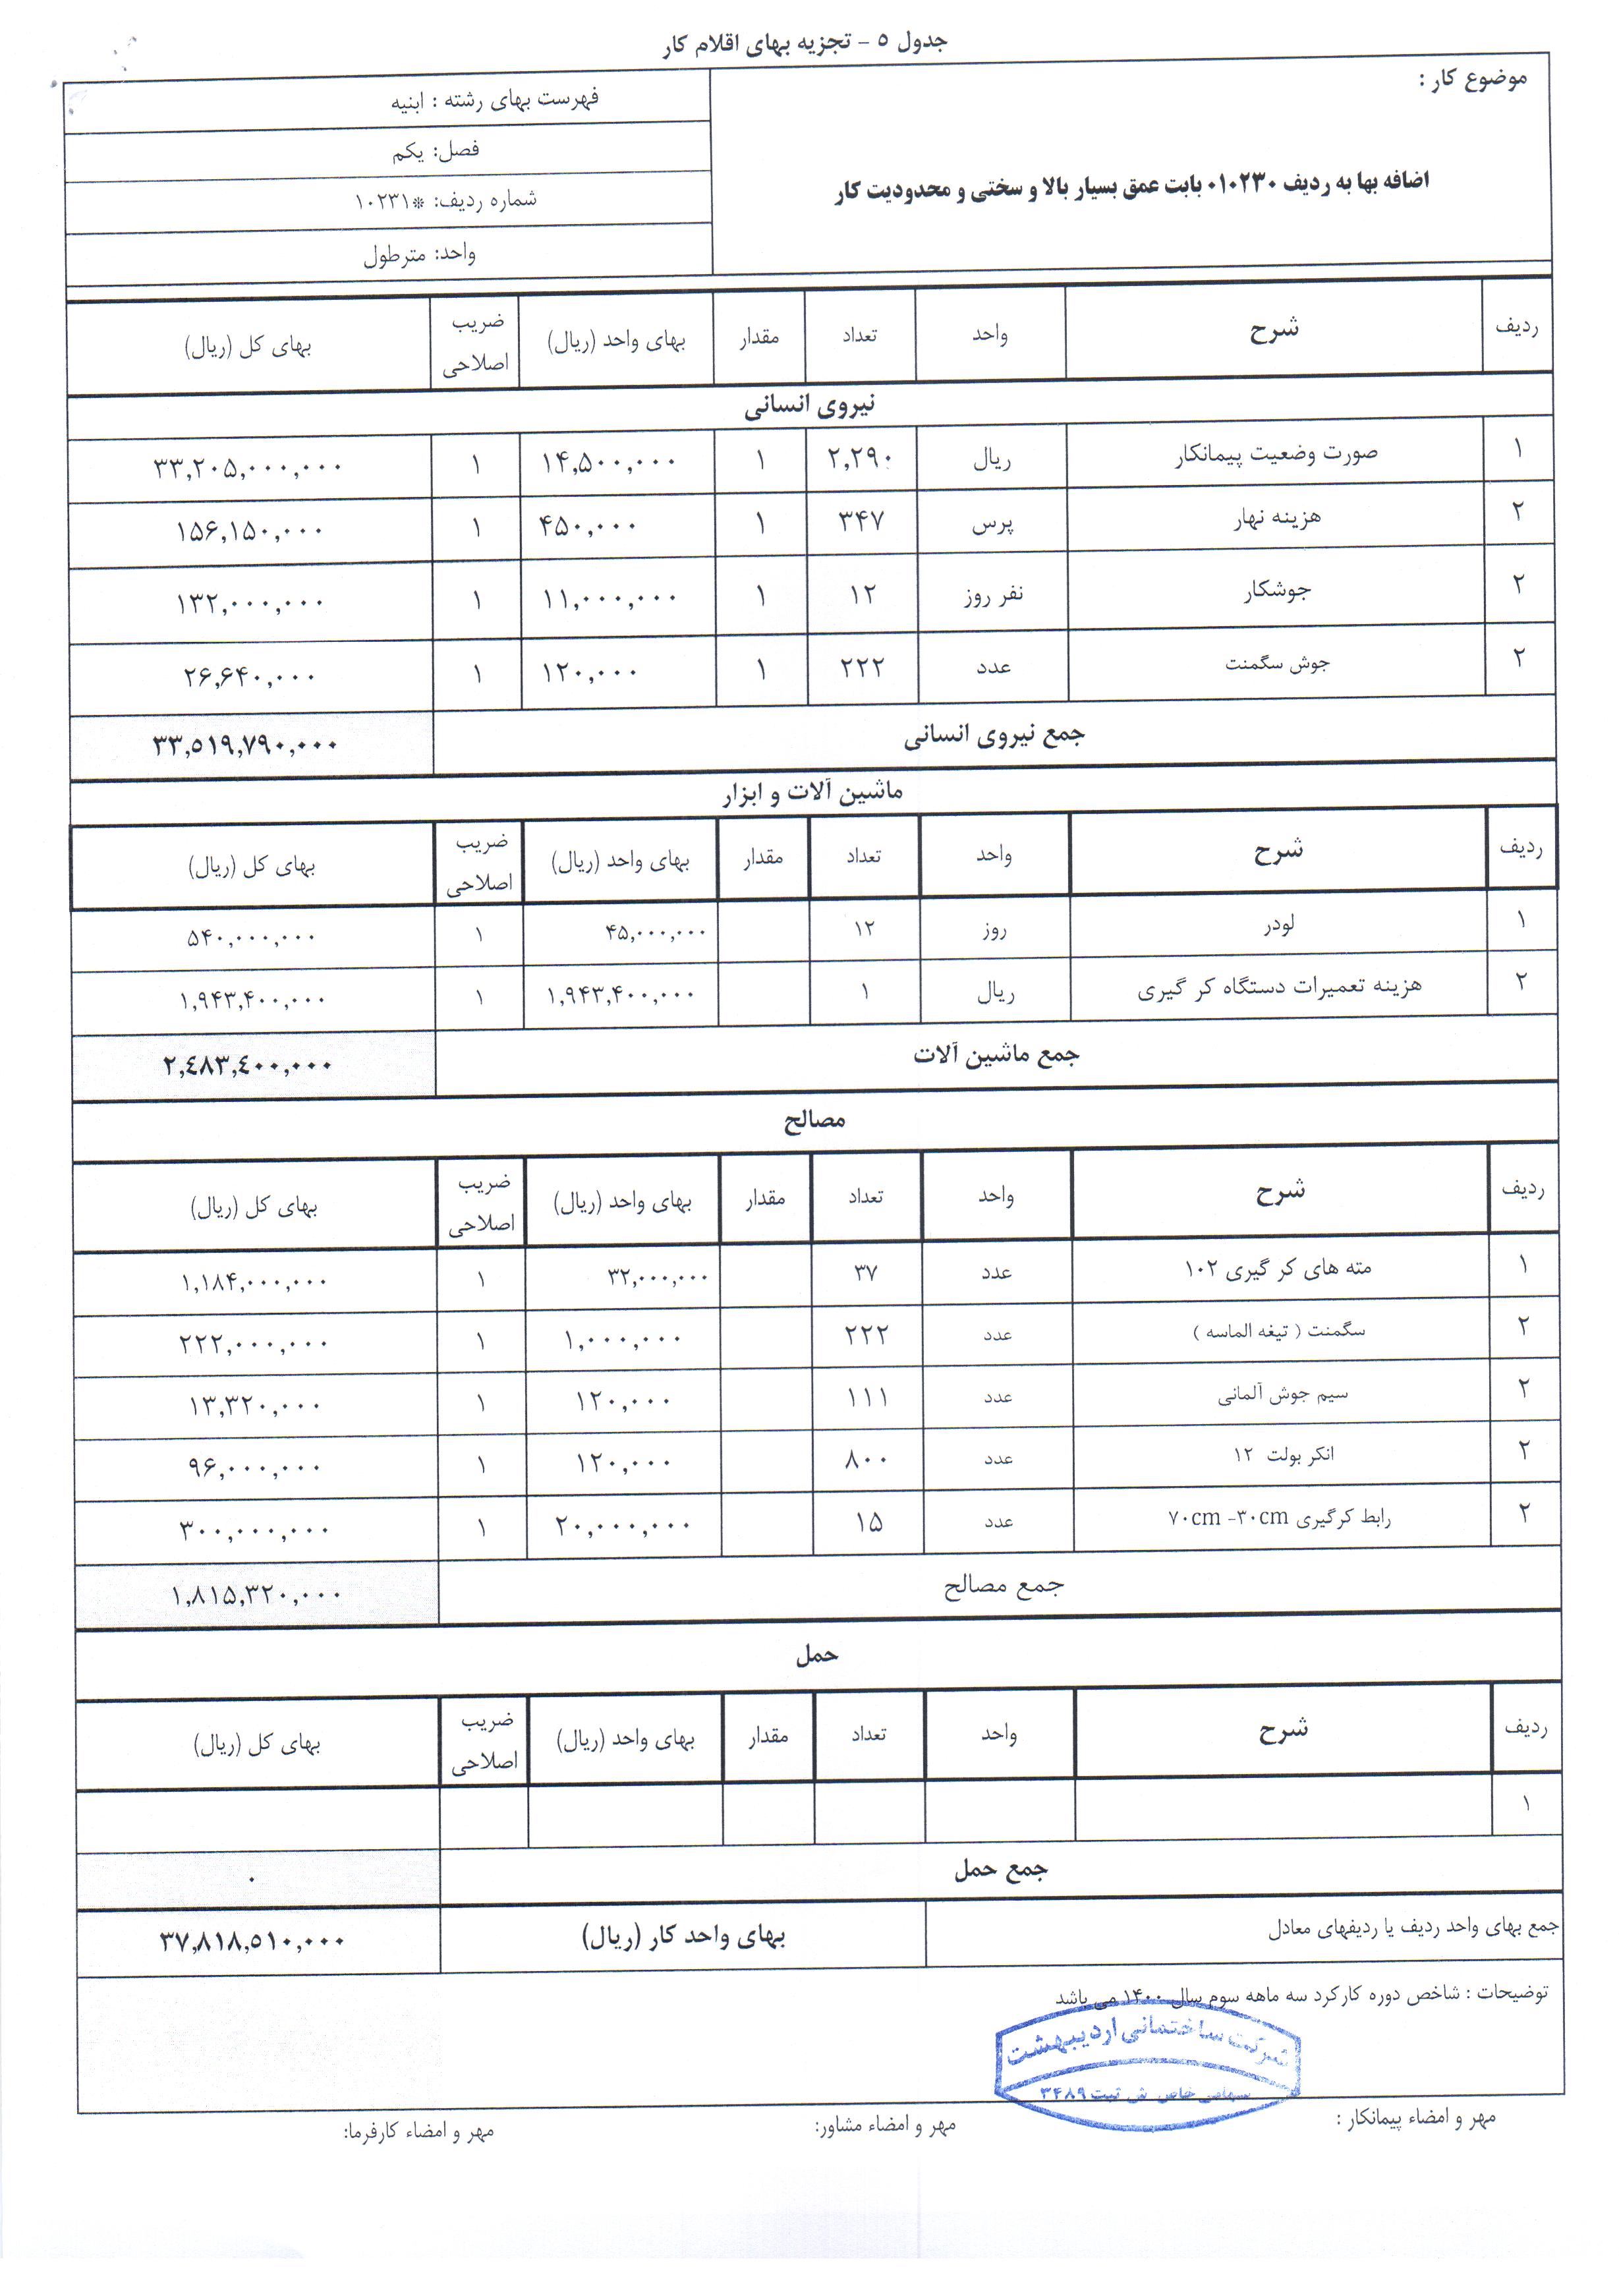 جدول ۵ - تجزیه بهای اقلام کار
موضوع کار :
اضافه بها به ردیف ۰۱۰۲۳۰ بابت عمق بسیار بالا و سختی و محدودیت کار
فهرست بهای رشته : ابنیه
فصل: یکم
شماره ردیف: *۱۰۲۳۱
واحد: مترطول
ردیف شرح واحد تعداد مقدار بهای واحد (ریال) ضریب اصلاحی بهای کل (ریال)
نیروی انسانی
۱ صورت وضعیت پیمانکار ریال ۲,۲۹۰ ۱ ۱۴,۵۰۰,۰۰۰ ۱ ۳۳,۲۰۵,۰۰۰,۰۰۰
۲ هزینه نهار پرس ۳۴۷ ۱ ۴۵۰,۰۰۰ ۱ ۱۵۶,۱۵۰,۰۰۰
۲ جوشکار نفر روز ۱۲ ۱ ۱۱,۰۰۰,۰۰۰ ۱ ۱۳۲,۰۰۰,۰۰۰
۲ جوش سگمنت عدد ۲۲۲ ۱ ۱۲۰,۰۰۰ ۱ ۲۶,۶۴۰,۰۰۰
جمع نیروی انسانی ۳۳,۵۱۹,۷۹۰,۰۰۰
ماشین آلات و ابزار
ردیف شرح واحد تعداد مقدار بهای واحد (ریال) ضریب اصلاحی بهای کل (ریال)
۱ لودر روز ۱۲ ۴۵,۰۰۰,۰۰۰ ۱ ۵۴۰,۰۰۰,۰۰۰
۲ هزینه تعمیرات دستگاه کر گیری ریال ۱ ۱,۹۴۳,۴۰۰,۰۰۰ ۱ ۱,۹۴۳,۴۰۰,۰۰۰
جمع ماشین آلات ۲,٤۸۳,٤۰۰,۰۰۰
مصالح
ردیف شرح واحد تعداد مقدار بهای واحد (ریال) ضریب اصلاحی بهای کل (ریال)
۱ مته های کر گیری ۱۰۲ عدد ۳۷ ۳۲,۰۰۰,۰۰۰ ۱ ۱,۱۸۴,۰۰۰,۰۰۰
۲ سگمنت ( تیغه الماسه ) عدد ۲۲۲ ۱,۰۰۰,۰۰۰ ۱ ۲۲۲,۰۰۰,۰۰۰
۲ سیم جوش آلمانی عدد ۱۱۱ ۱۲۰,۰۰۰ ۱ ۱۳,۳۲۰,۰۰۰
۲ انکر بولت ۱۲ عدد ۸۰۰ ۱۲۰,۰۰۰ ۱ ۹۶,۰۰۰,۰۰۰
۲ رابط کرگیری ۷۰cm -۳۰cm عدد ۱۵ ۲۰,۰۰۰,۰۰۰ ۱ ۳۰۰,۰۰۰,۰۰۰
جمع مصالح ۱,۸۱۵,۳۲۰,۰۰۰
حمل
ردیف شرح واحد تعداد مقدار بهای واحد (ریال) ضریب اصلاحی بهای کل (ریال)
۱
جمع حمل ۰
جمع بهای واحد ردیف یا ردیفهای معادل بهای واحد کار (ریال) ۳۷,۸۱۸,۵۱۰,۰۰۰
توضیحات : شاخص دوره کارکرد سه ماهه سوم سال ۱۴۰۰ می باشد
شرکت ساختمانی اردیبهشت
سهامی خاص ش ثبت ۳۴۸۹
مهر و امضاء پیمانکار : مهر و امضاء مشاور: مهر و امضاء کارفرما: